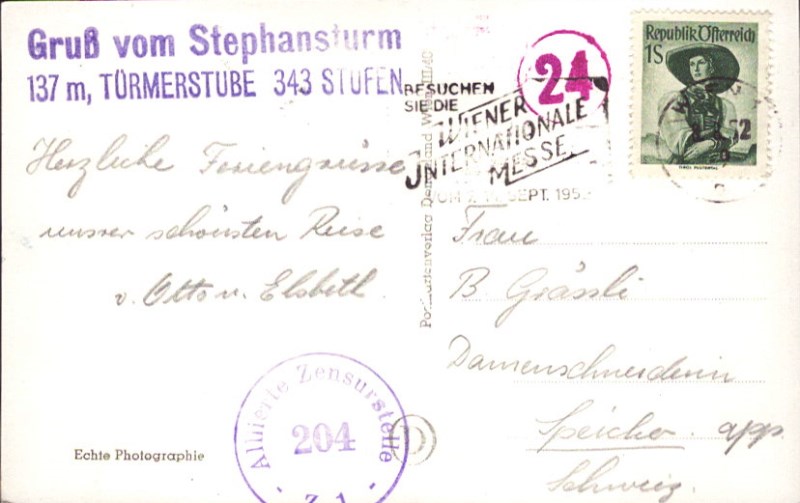 Gruß vom Stephansturm
137 m, TÜRMERSTUBE 343 STUFEN
Herzliche Feriengrüsse
unsrer schönsten Reise
v. Otto u. Elsbeth.
Echte Photographie
Alliierte Zensurstelle
204
- Z 1 -
Postkartenverlag Wien
BESUCHEN
SIE DIE
WIENER
INTERNATIONALE
MESSE
VOM 7. SEPT. 195
24
Republik Österreich
1S
WIEN
52
Frau
B Grässli
Damenschneiderin
Speicher app
Schweiz.